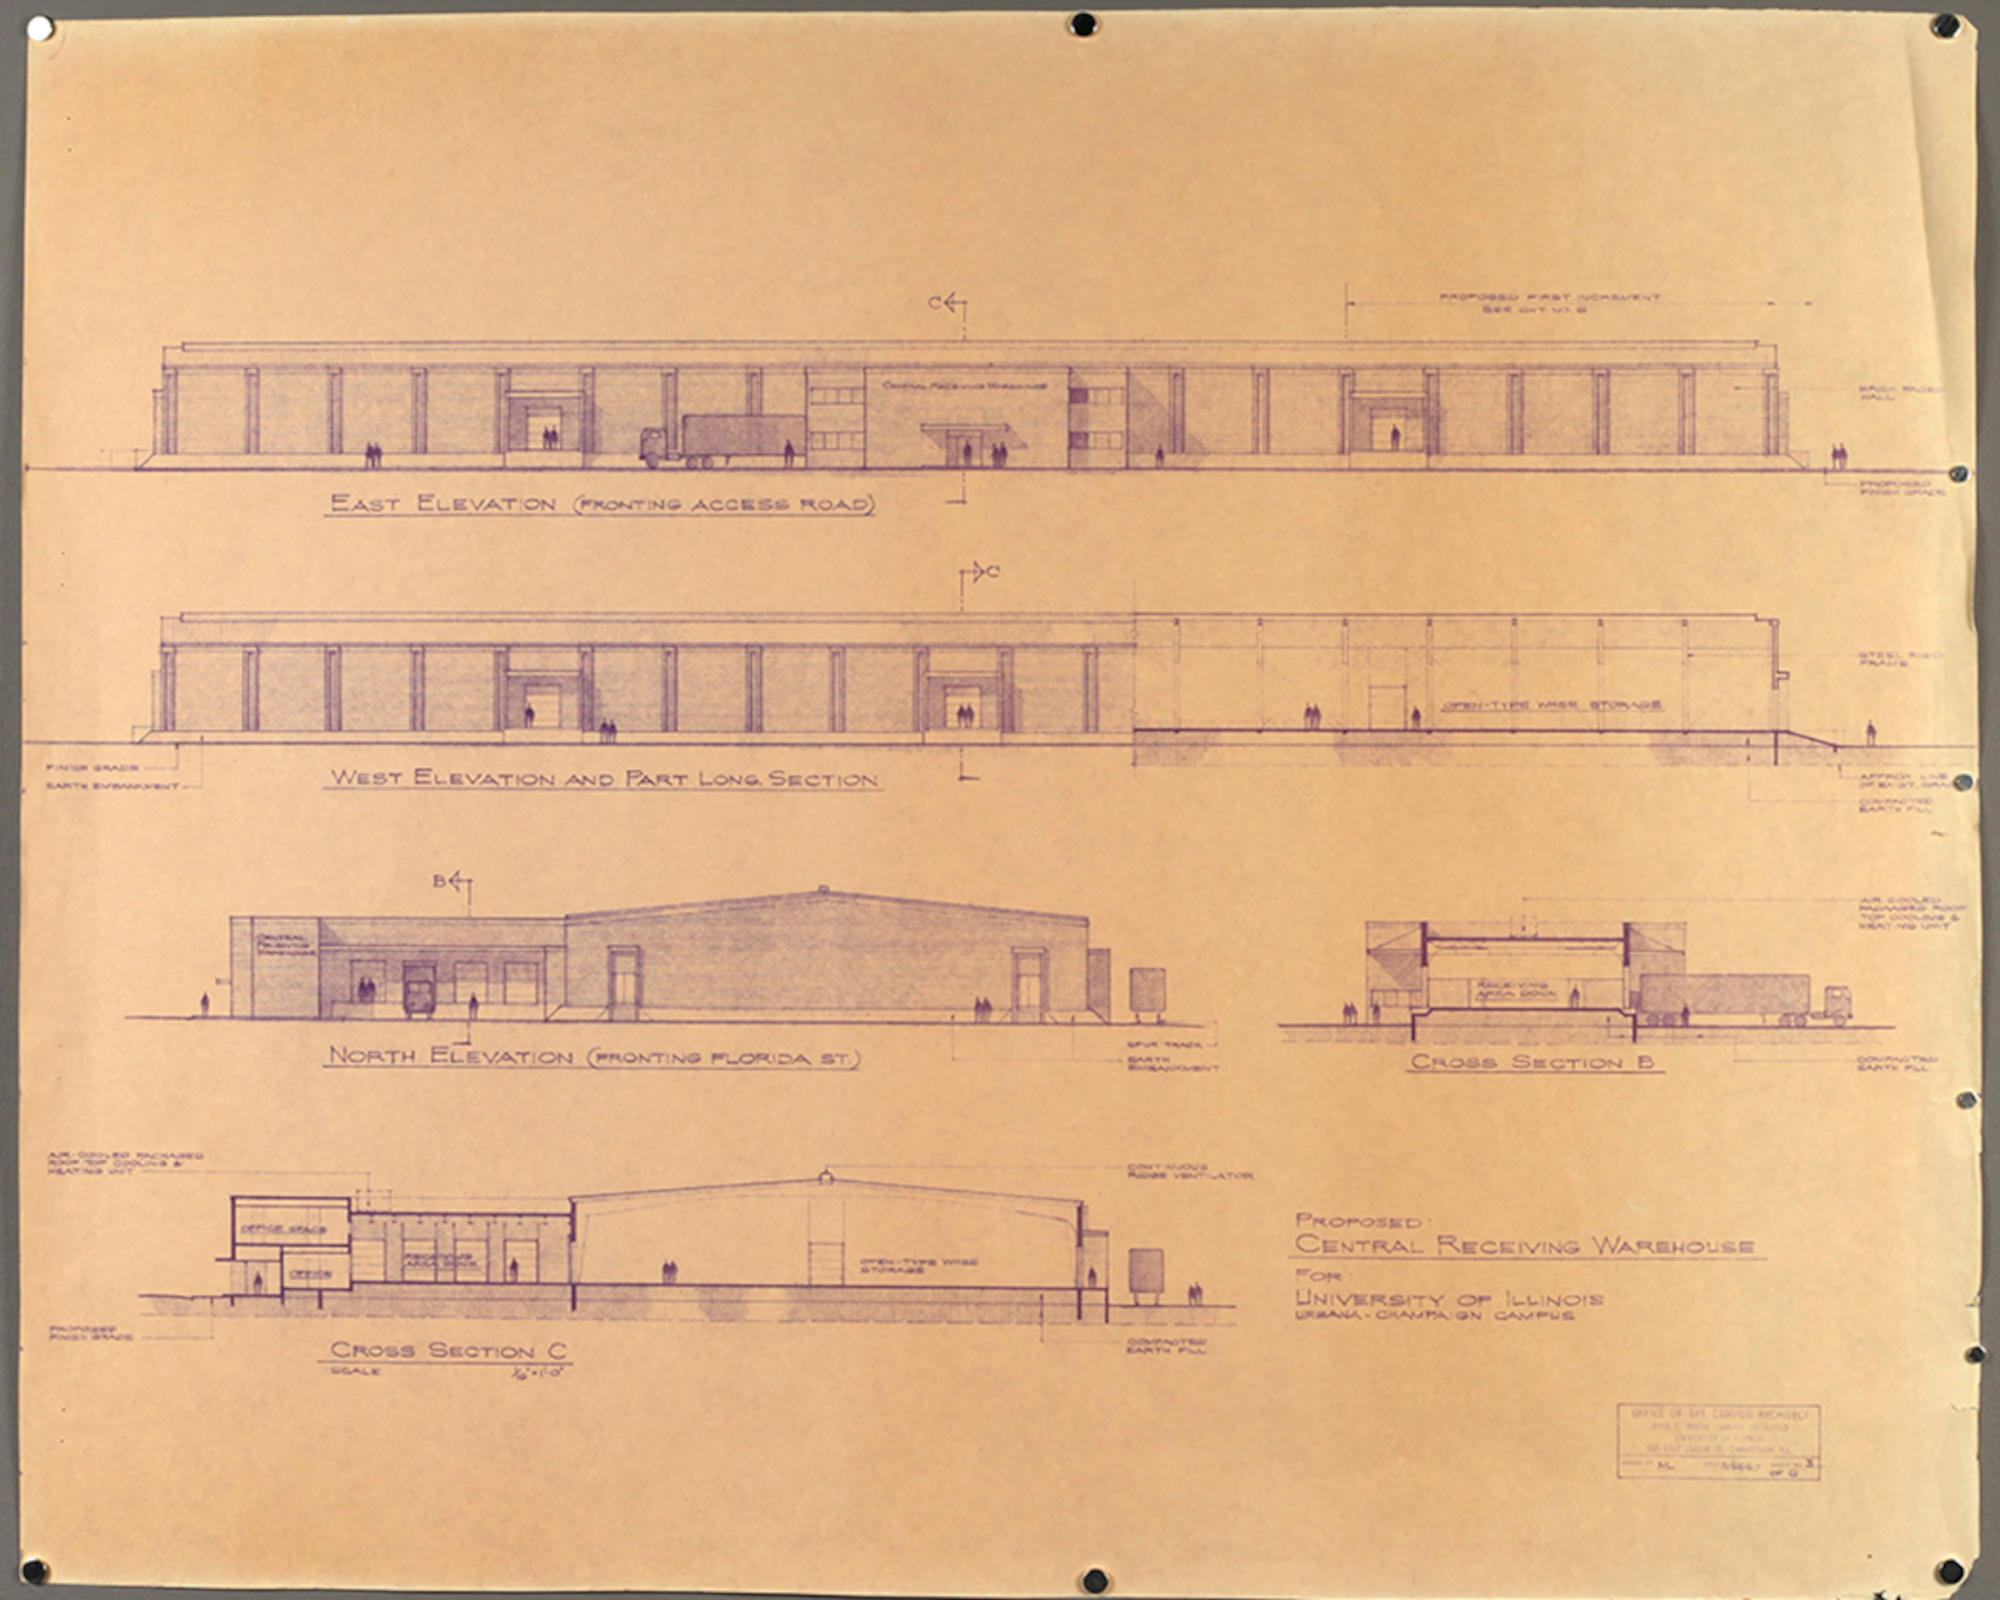 C
PROPOSED FIRST INCREMENT
SEE
CENTRAL RECEIVING WAREHOUSE
BRICK FACED
WALL
PROPOSED
FINISH GRADE
EAST ELEVATION (FRONTING ACCESS ROAD)
C
STEEL RIGID
FRAME
OPEN-TYPE WHSE STORAGE
FINISH GRADE
EARTH EMBANKMENT
WEST ELEVATION AND PART LONG. SECTION
APPROX LINE
OF EXIST. GRADE
COMPACTED
EARTH FILL
B
CENTRAL
RECEIVING
WAREHOUSE
AIR COOLED
PACKAGED ROOF
TOP COOLING &
HEATING UNIT
RECEIVING
AREA DOCK
SPUR TRACK
EARTH
EMBANKMENT
NORTH ELEVATION (FRONTING FLORIDA ST.)
CROSS SECTION B
COMPACTED
EARTH FILL
AIR-COOLED PACKAGED
ROOF TOP COOLING &
HEATING UNIT
CONTINUOUS
RIDGE VENTILATOR
OFFICE SPACE
RECEIVING
AREA DOCK
OFFICE
OPEN-TYPE WHSE
STORAGE
PROPOSED
FINISH GRADE
COMPACTED
EARTH FILL
CROSS SECTION C
SCALE
PROPOSED:
CENTRAL RECEIVING WAREHOUSE
FOR
UNIVERSITY OF ILLINOIS
URBANA-CHAMPAIGN CAMPUS
OFFICE OF THE CAMPUS ARCHITECT
UNIVERSITY OF ILLINOIS
ML
OF 6